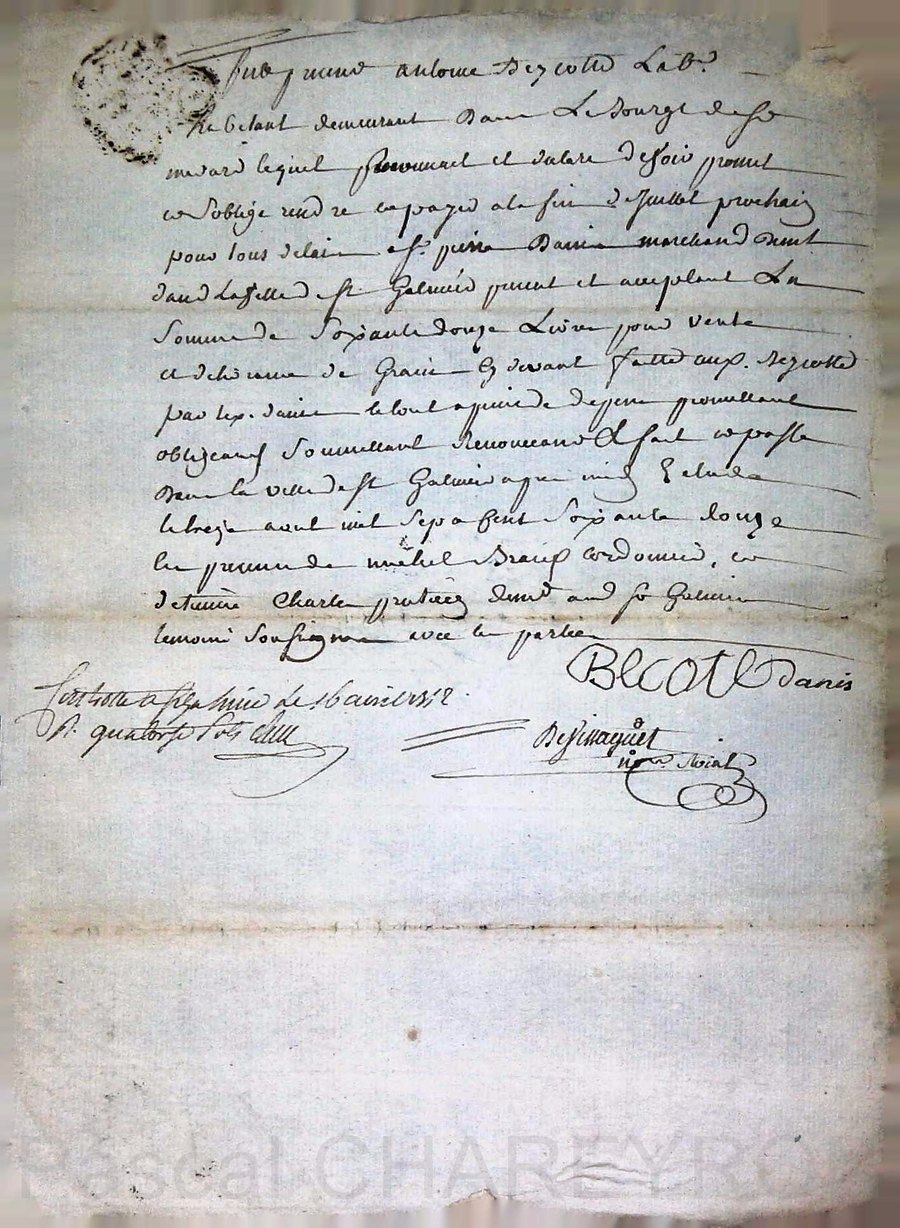 fut présent antoine Bezcotte Lab.r
habitant demeurant Dans Le Bourgt de st
medard lequel et declare devoir promet
et soblige rendre et payer a la fin de Juillet prochain
pour tous delais a sr pierre Danis marchand demt
dans La ville de st Galmier present et acceptant La
somme de soixante douze Livre pour vente
et delivrance de Grain Cy devant faitte aux. Bezcotte
par lex. danis le tout a peine de depens promettant
obligeant soumettant Renonceant &c fait et passé
Dans la ville de st Galmier apres midy Etude
le treze avril mil sept Cent soixante douze
En presence de michel cordonnier, et
detienne Charle demt and st Galmier
temoins soussignes avec les parties
BECOTE danis
Controllé a st le 16 avril 1772
R. quatorse sols
nore Roial
Pascal CHAREYRON